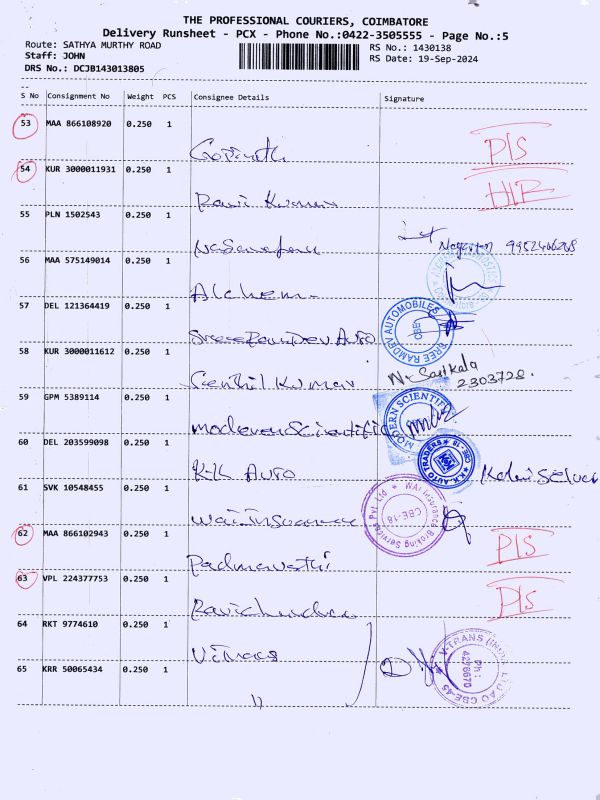 THE PROFESSIONAL COURIERS, COIMBATORE
Delivery Runsheet - PCX - Phone No.:0422-3505555 - Page No.:5
Route: SATHYA MURTHY ROAD
RS No.: 1430138
Staff: JOHN
RS Date: 19-Sep-2024
DRS No.: DCJB143013805
S No Consignment No Weight PCS Consignee Details Signature
53 MAA 866108920 0.250 1
Gopinath PIS
54 KUR 3000011931 0.250 1
Ravi Kumar
55 PLN 1502543 0.250 1
9952466268
56 MAA 575149014 0.250 1
Alchem
57 DEL 121364419 0.250 1
SREE RAMDEV AUTOMOBILES CBE
Sree Ram Dev Auto
58 KUR 3000011612 0.250 1
Senthil Kumar N. Sasikala
2303728.
59 GPM 5389114 0.250 1
modern Scientific MODERN SCIENTIFIC
60 DEL 203599098 0.250 1
K.K Auto K.K. AUTO TRADERS CBE-18 Kalai Selvi
61 SVK 10548455 0.250 1
WAI Insurance Broking Services Pvt. Ltd CBE-18
62 MAA 866102943 0.250 1
Padmavathi PIS
63 VPL 224377753 0.250 1
Ravichandran PIS
64 RKT 9774610 0.250 1
Vtrans
V-TRANS (INDIA) LTD AO CBE-45 Ph : 4276670
65 KRR 50065434 0.250 1
"